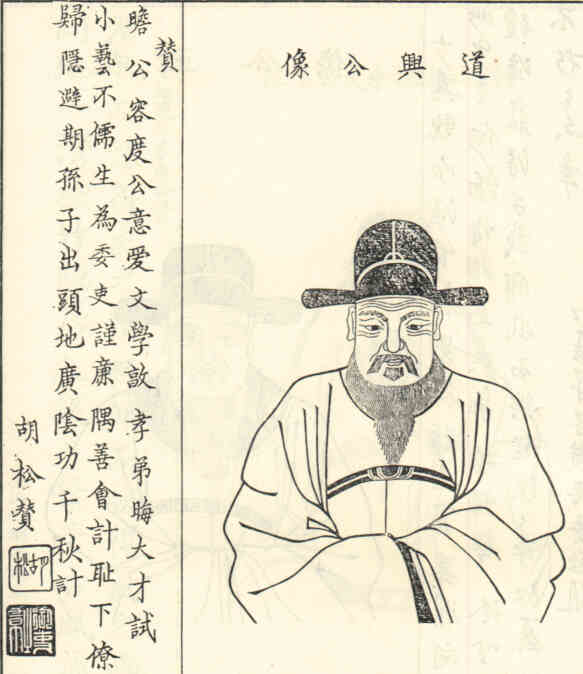 道興公像
贊
瞻公容度公意愛文學敦孝弟晦大才試
小藝不儒生為委吏謹廉隅善會計恥下僚
歸隱避期孫子出頭地廣陰功千秋計
胡松贊
胡松